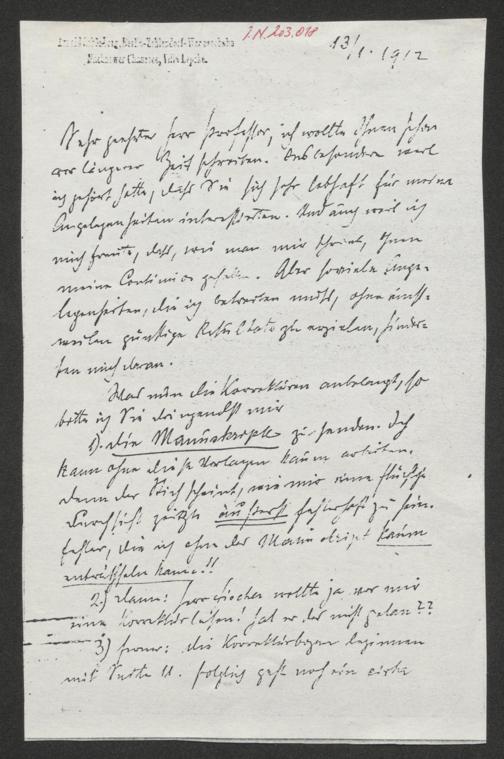 Arnold Schönberg, Berlin-Zehlendorf-Wannseebahn
Machnower Chaussee, Villa Lepcke.
I.N. 203.018
13/1. 1912
Sehr geehrter Herr Professor, ich wollte Ihnen schon
vor längerer Zeit schreiben. Insbesondere weil
ich gehört hatte, daß Sie sich sehr lebhaft für meine
Angelegenheiten interessierten. Und auch weil ich
mich freute, daß, wie man mir schrieb, Ihnen
meine gefallen. Aber soviele Ange-
legenheiten, die ich betreiben muß, ohne einst-
weilen günstige Resultate zu erzielen, hinder-
ten mich daran.
Was nun die Korrekturen anbelangt, so
bitte ich Sie dringendst mir
1). die Manuskripte zu senden. Ich
kann ohne diese Vorlagen kaum arbeiten.
Denn der Stich scheint, wie mir eine flüchtige
Durchsicht zeigte äußerst fehlerhaft zu sein.
Fehler, die ich ohne das Manuskript kaum
enträthseln kann!!
2.) dann: Herr wollte ja vor mir
eine Korrektur lesen! hat er das nicht getan??
3) ferner: die Korrekturbogen beginnen
mit Seite 11. folglich geht noch ein